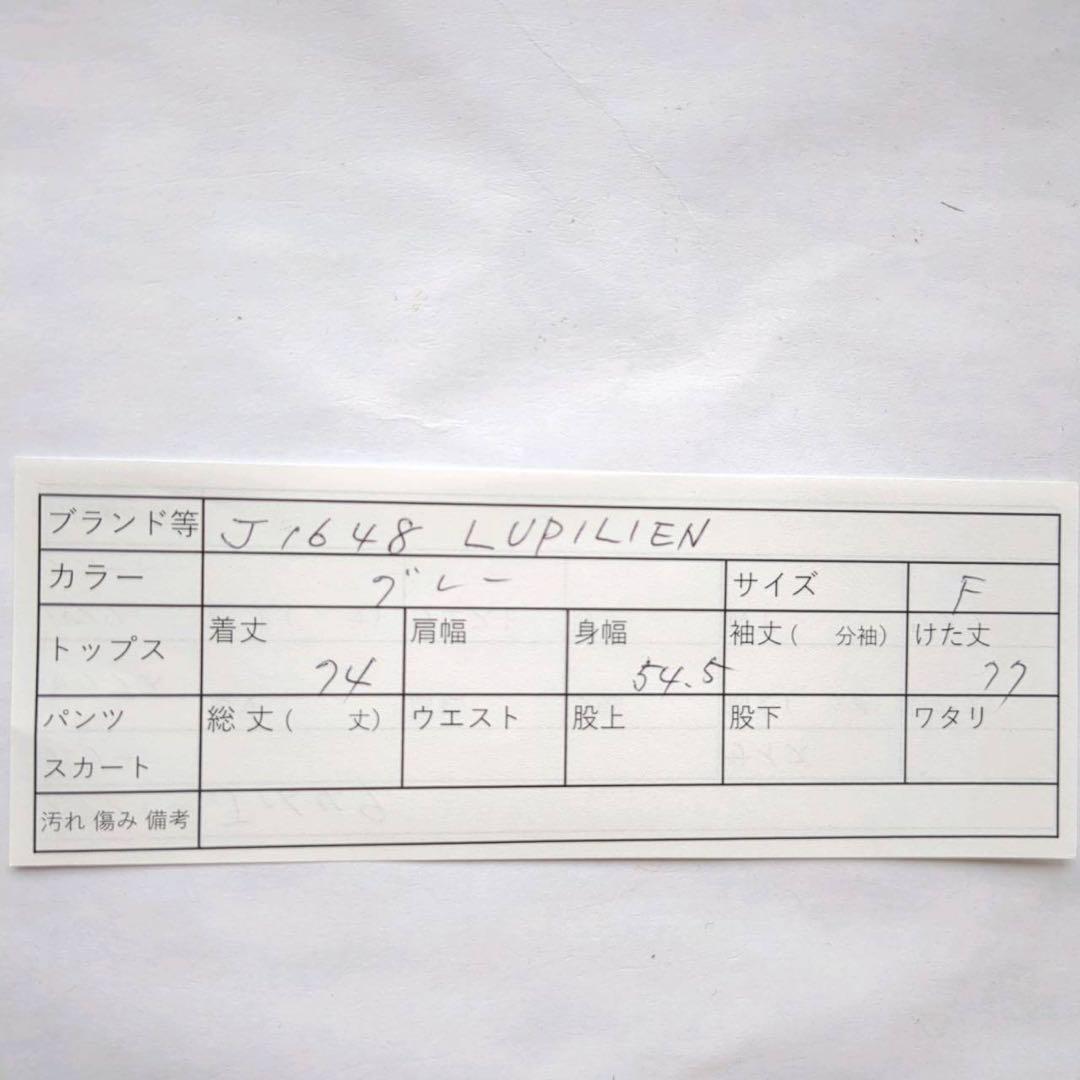 ブランド等 J1648 LUPILIEN
カラー グレー サイズ F
トップス 着丈 74 肩幅 身幅 54.5 袖丈( 分袖) けた丈 77
パンツ スカート 総丈( 丈) ウエスト 股上 股下 ワタリ
汚れ 傷み 備考